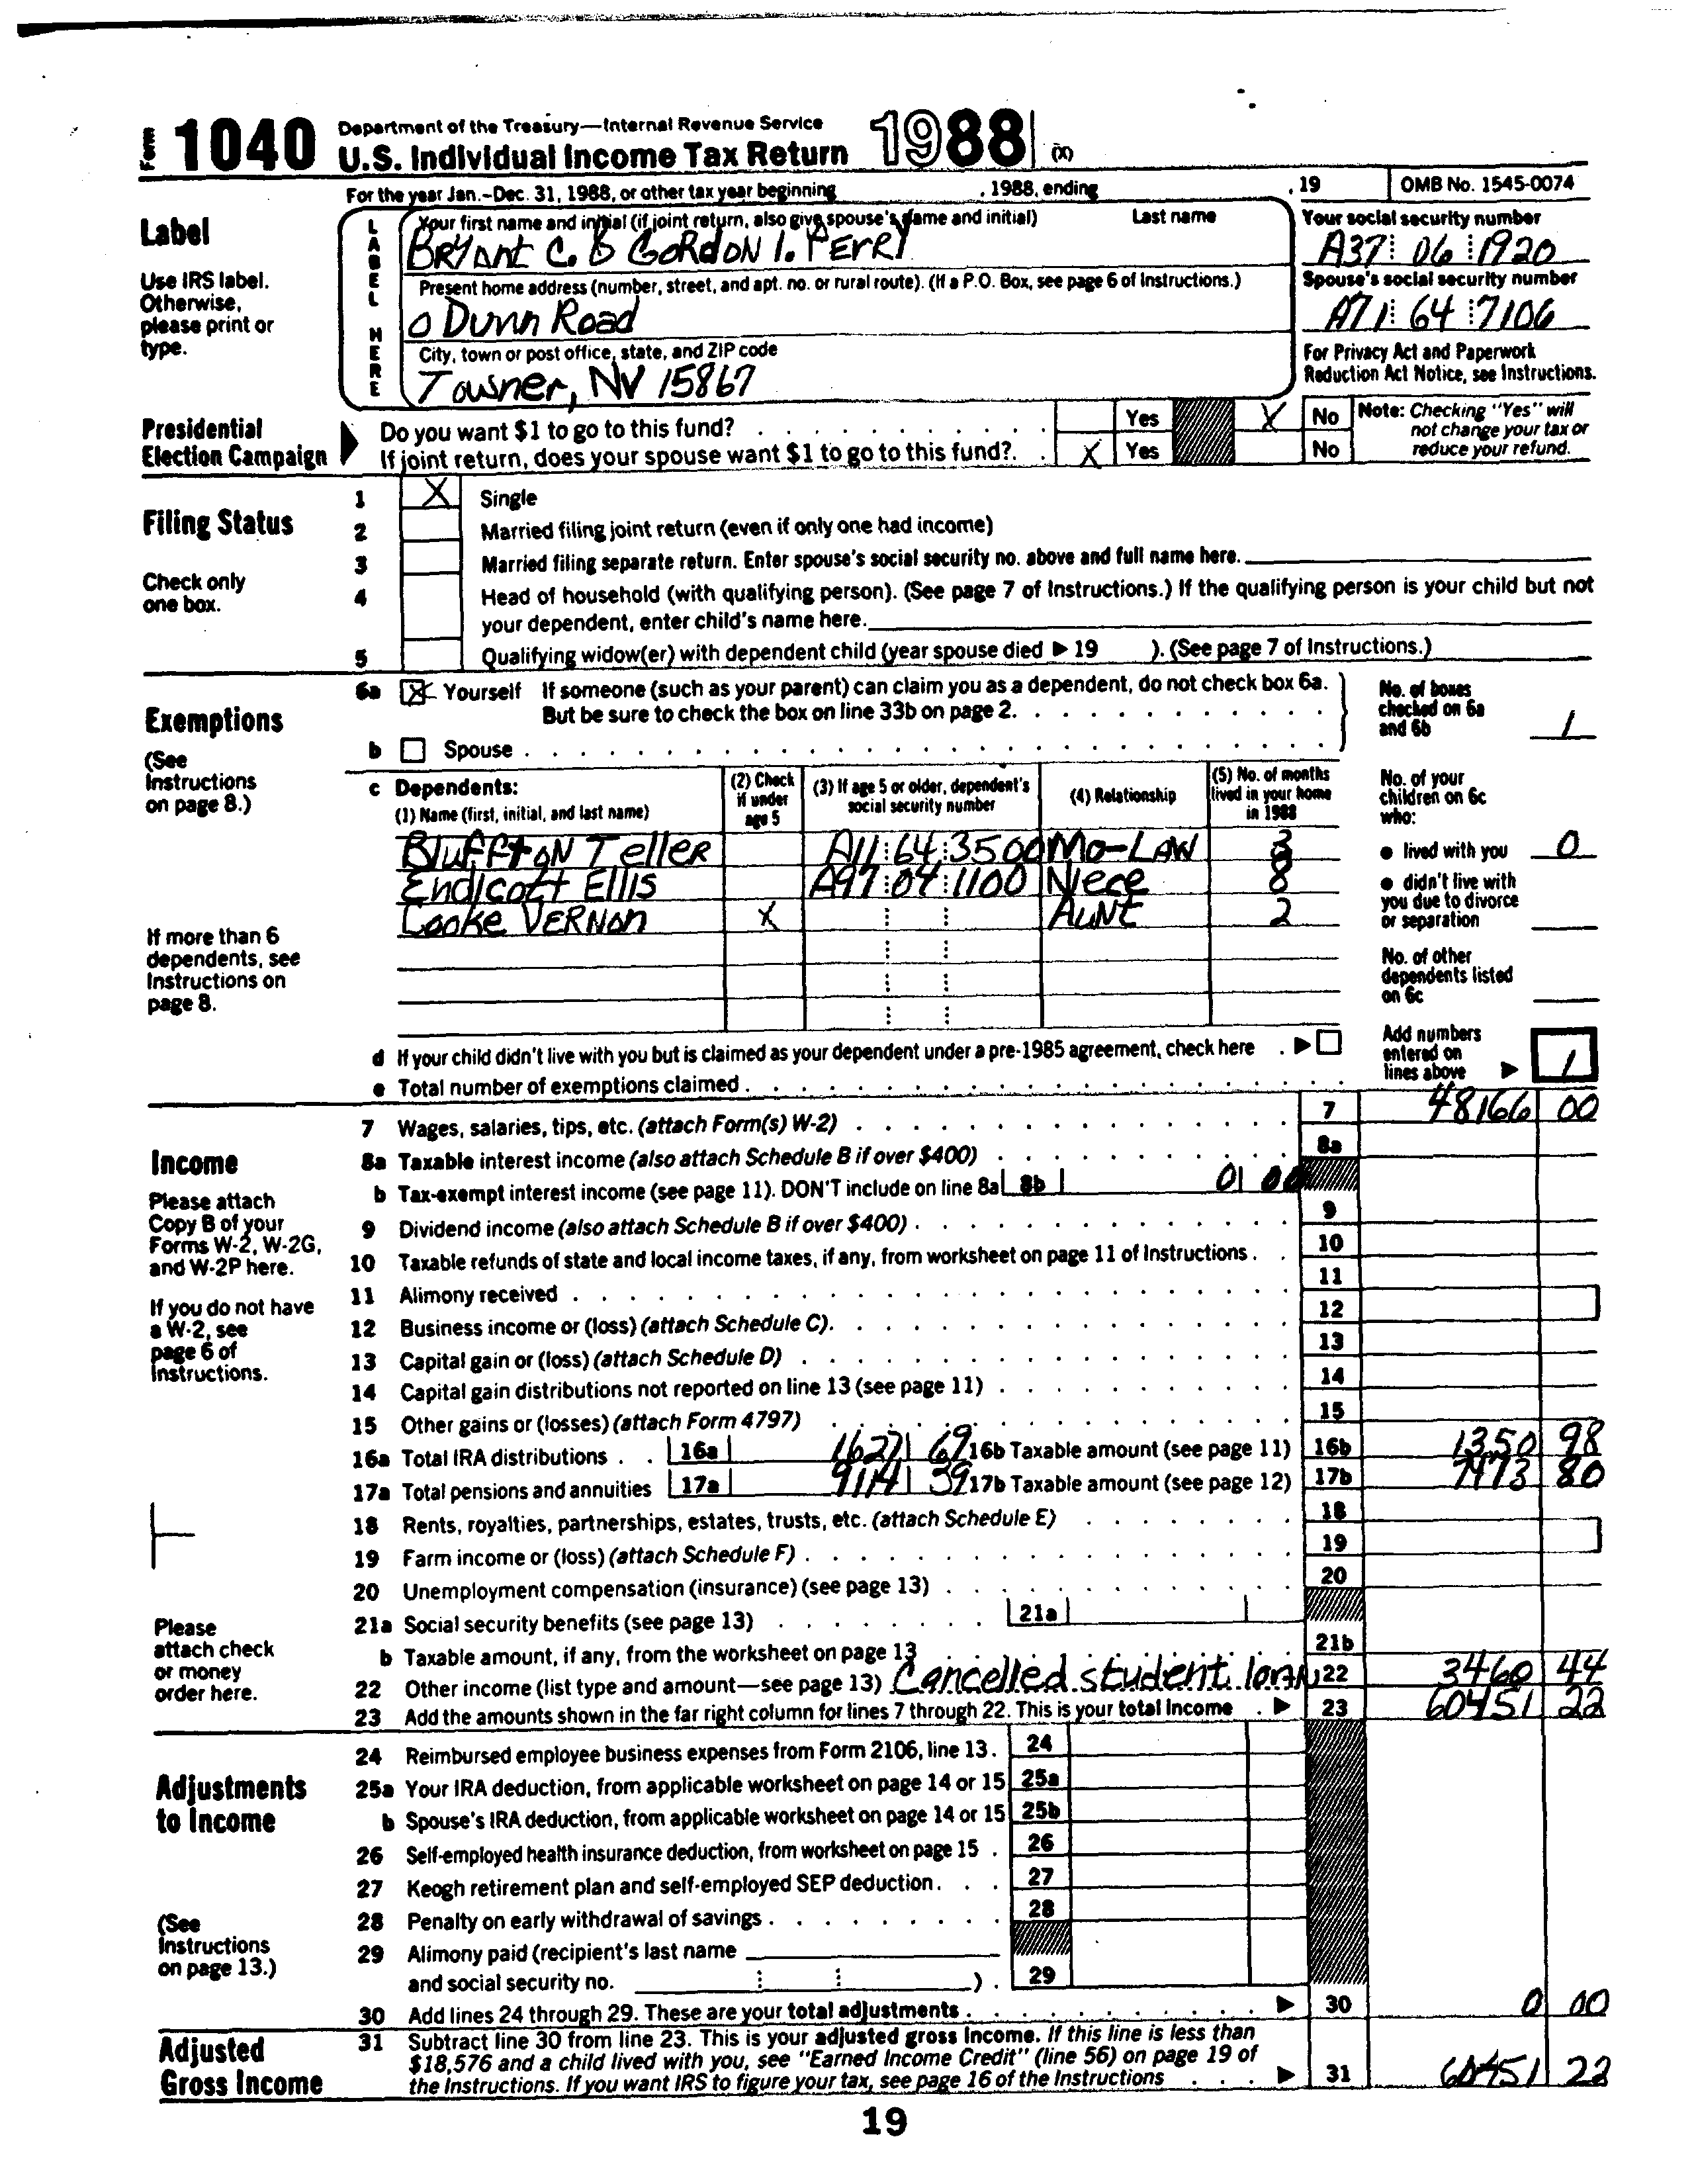 Form 1040 Department of the Treasury—Internal Revenue Service
U.S. Individual Income Tax Return 1988 (X)
For the year Jan.-Dec. 31, 1988, or other tax year beginning , 1988, ending , 19 OMB No. 1545-0074
Label
Use IRS label. Otherwise, please print or type.
LABEL HERE
Your first name and initial (if joint return, also give spouse's name and initial) Last name
BRYANT C. & GORDON I. PERRY
Your social security number
A37 06 1920
Present home address (number, street, and apt. no. or rural route). (If a P.O. Box, see page 6 of Instructions.)
0 Dunn Road
Spouse's social security number
A71 64 7106
City, town or post office, state, and ZIP code
Towner, NV 15867
For Privacy Act and Paperwork Reduction Act Notice, see Instructions.
Presidential Election Campaign
Do you want $1 to go to this fund? Yes X No
If joint return, does your spouse want $1 to go to this fund? X Yes No
Note: Checking "Yes" will not change your tax or reduce your refund.
Filing Status
Check only one box.
1 X Single
2 Married filing joint return (even if only one had income)
3 Married filing separate return. Enter spouse's social security no. above and full name here.
4 Head of household (with qualifying person). (See page 7 of Instructions.) If the qualifying person is your child but not
your dependent, enter child's name here.
5 Qualifying widow(er) with dependent child (year spouse died ▶ 19 ). (See page 7 of Instructions.)
Exemptions
(See Instructions on page 8.)
6a X Yourself If someone (such as your parent) can claim you as a dependent, do not check box 6a.
But be sure to check the box on line 33b on page 2.
b Spouse
No. of boxes checked on 6a and 6b 1
c Dependents:
(1) Name (first, initial, and last name) (2) Check if under age 5 (3) If age 5 or older, dependent's social security number (4) Relationship (5) No. of months lived in your home in 1988
Bluffton Teller A11 64 3500 Mo-LAW 3
Endicott Ellis A97 04 1100 Niece 8
Cooke VERNON X AUNT 2
No. of your children on 6c who:
● lived with you 0
● didn't live with you due to divorce or separation
No. of other dependents listed on 6c
If more than 6 dependents, see Instructions on page 8.
d If your child didn't live with you but is claimed as your dependent under a pre-1985 agreement, check here ▶
e Total number of exemptions claimed
Add numbers entered on lines above ▶ 1
Income
Please attach Copy B of your Forms W-2, W-2G, and W-2P here.
If you do not have a W-2, see page 6 of Instructions.
7 Wages, salaries, tips, etc. (attach Form(s) W-2) 7 48166 00
8a Taxable interest income (also attach Schedule B if over $400) 8a
b Tax-exempt interest income (see page 11). DON'T include on line 8a 8b 0 00
9 Dividend income (also attach Schedule B if over $400) 9
10 Taxable refunds of state and local income taxes, if any, from worksheet on page 11 of Instructions 10
11 Alimony received 11
12 Business income or (loss) (attach Schedule C). 12
13 Capital gain or (loss) (attach Schedule D) 13
14 Capital gain distributions not reported on line 13 (see page 11) 14
15 Other gains or (losses) (attach Form 4797) 15
16a Total IRA distributions 16a 1627 69 16b Taxable amount (see page 11) 16b 1350 98
17a Total pensions and annuities 17a 9114 39 17b Taxable amount (see page 12) 17b 7473 80
18 Rents, royalties, partnerships, estates, trusts, etc. (attach Schedule E) 18
19 Farm income or (loss) (attach Schedule F) 19
20 Unemployment compensation (insurance) (see page 13) 20
21a Social security benefits (see page 13) 21a
b Taxable amount, if any, from the worksheet on page 13 21b
22 Other income (list type and amount—see page 13) Cancelled student loan 22 3460 44
23 Add the amounts shown in the far right column for lines 7 through 22. This is your total income ▶ 23 60451 22
Please attach check or money order here.
Adjustments to Income
(See Instructions on page 13.)
24 Reimbursed employee business expenses from Form 2106, line 13. 24
25a Your IRA deduction, from applicable worksheet on page 14 or 15 25a
b Spouse's IRA deduction, from applicable worksheet on page 14 or 15 25b
26 Self-employed health insurance deduction, from worksheet on page 15 26
27 Keogh retirement plan and self-employed SEP deduction 27
28 Penalty on early withdrawal of savings 28
29 Alimony paid (recipient's last name
and social security no. ) 29
30 Add lines 24 through 29. These are your total adjustments ▶ 30 0 00
Adjusted Gross Income
31 Subtract line 30 from line 23. This is your adjusted gross income. If this line is less than
$18,576 and a child lived with you, see "Earned Income Credit" (line 56) on page 19 of
the Instructions. If you want IRS to figure your tax, see page 16 of the Instructions ▶ 31 60451 22
19